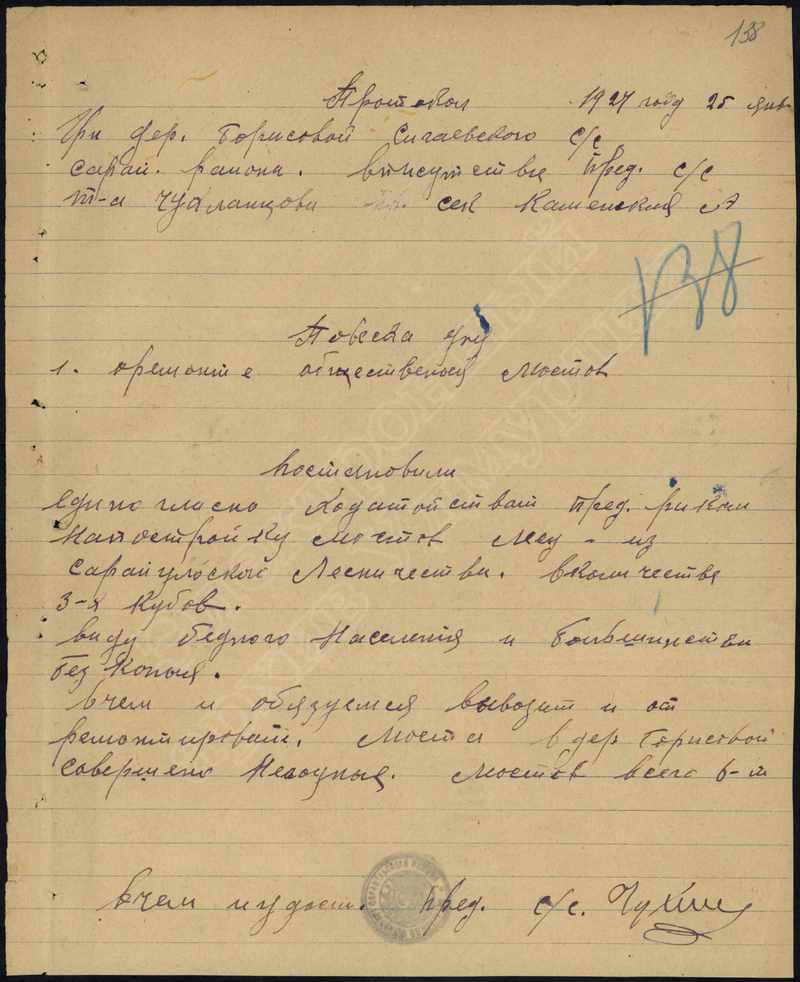 138
Протокол 1927 году 25 янв
При дер. Борисовой Сигаевского с/с
сарап. района. вписутствие пред. с/с
т-а Чухланцова сек Каменских А
138
Повеска дня
1. оремонте общественых мостов
Постановили
единогласно ходатойстват пред. риком
напостройку мостов лесу - из
сарапульской лесничества. вколичестве
3-х кубов.
виду бедного населения и большинства
без коных.
вчем и обязуемся вывозит и от
ремонтировать. моста в дер Борисовой
совершено негодныя. мостов всего 6-м
вчем и удост. пред. с/с. Чухлан